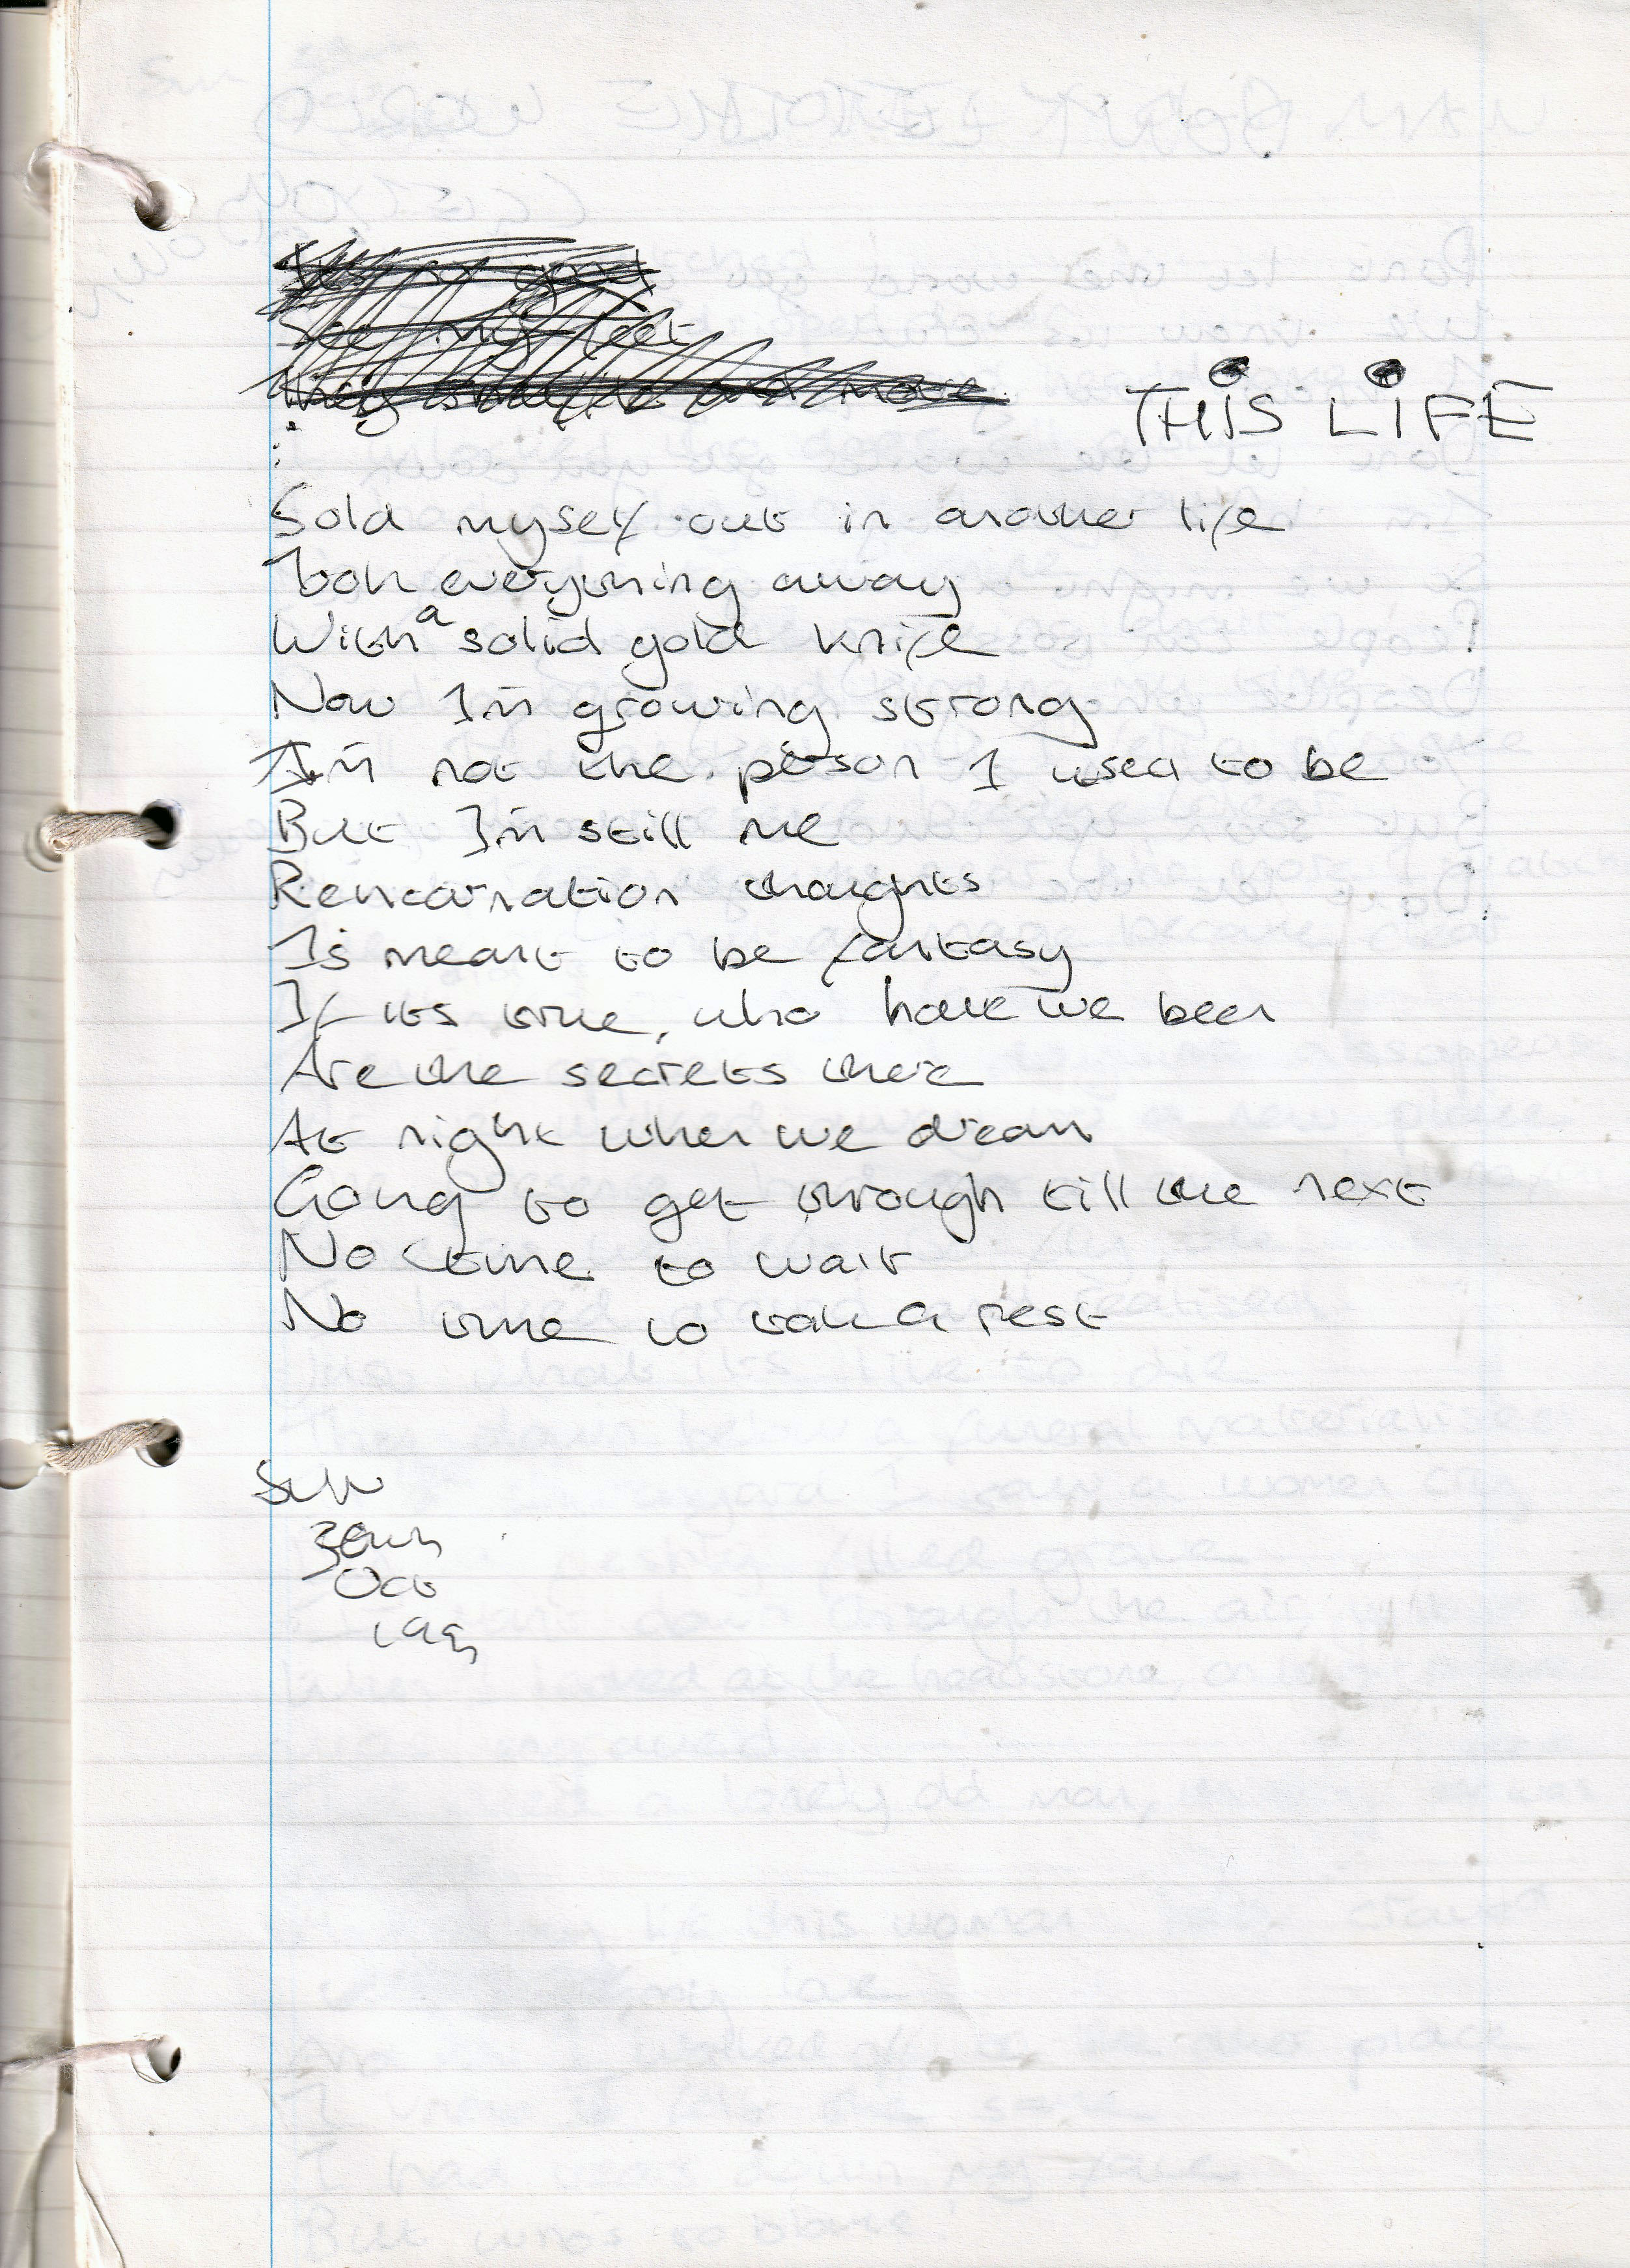 See my feet
THiS LiFE
Sold myself out in another life
Took everything away
With a solid gold knife
Now I'm growing strong
I'm not the person I used to be
But I'm still me
Rencarnation thoughts
Is meant to be fantasy
If its true, who have we been
Are the secrets there
At night when we dream
Going to get through till the next
No time to wait
No time to take a rest
Sun
30th
Oct